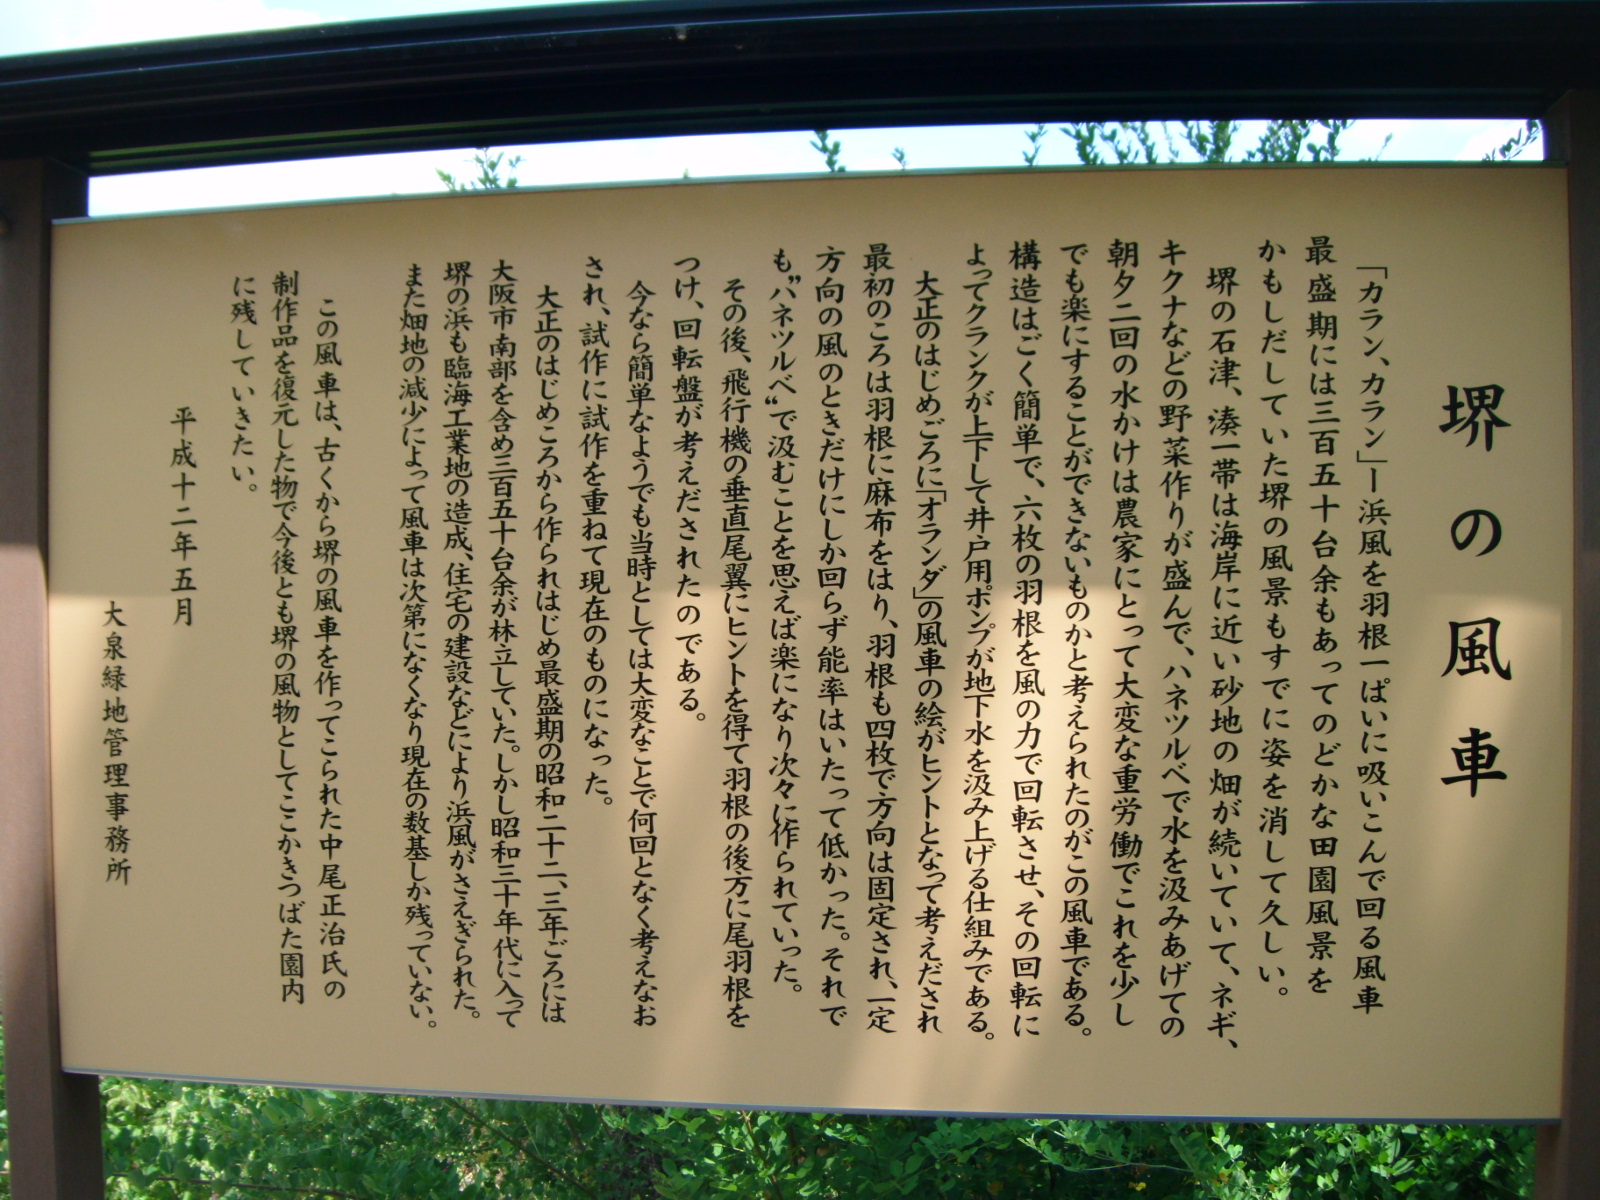 堺の風車
「カラン、カラン」ー浜風を羽根一ぱいに吸いこんで回る風車
最盛期には三百五十台余もあってのどかな田園風景を
かもしだしていた堺の風景もすでに姿を消して久しい。
堺の石津、湊一帯は海岸に近い砂地の畑が続いていて、ネギ、
キクナなどの野菜作りが盛んで、ハネツルベで水を汲みあげての
朝夕二回の水かけは農家にとって大変な重労働でこれを少し
でも楽にすることができないものかと考えられたのがこの風車である。
構造はごく簡単で、六枚の羽根を風の力で回転させ、その回転に
よってクランクが上下して井戸用ポンプが地下水を汲み上げる仕組みである。
大正のはじめごろに「オランダ」の風車の絵がヒントとなって考えだされ
最初のころは羽根に麻布をはり、羽根も四枚で方向は固定され、一定
方向の風のときだけにしか回らず能率はいたって低かった。それで
も“バネツルベ“で汲むことを思えば楽になり次々に作られていった。
その後、飛行機の垂直尾翼にヒントを得て羽根の後方に尾羽根を
つけ、回転盤が考えだされたのである。
今なら簡単なようでも当時としては大変なことで何回となく考えなお
され、試作に試作を重ねて現在のものになった。
大正のはじめころから作られはじめ最盛期の昭和二十二、三年ごろには
大阪市南部を含め三百五十台余が林立していた。しかし昭和三十年代に入って
堺の浜も臨海工業地の造成、住宅の建設などにより浜風がさえぎられた。
また畑地の減少によって風車は次第になくなり現在の数基しか残っていない。
この風車は、古くから堺の風車を作ってこられた中尾正治氏の
制作品を復元した物で今後とも堺の風物としてここかきつばた園内
に残していきたい。
平成十二年五月
大泉緑地管理事務所